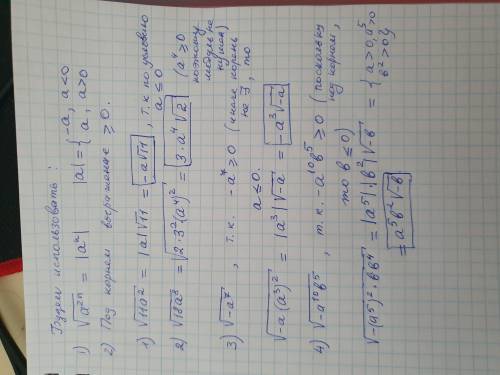 Будем использовать:
1) √a²ⁿ = |aⁿ| |a| = { -a, a<0
a, a>0
2) Под корнем выражение ≥ 0.
1) √11a² = |a|√11 = -a√11, т.к по условию
a ≤ 0
2) √18a⁸ = √2·3²(a⁴)² = 3·a⁴√2 (a⁴ ≥ 0
поэтому
модуль не
нужен)
3) √-a⁷, т.к. -a⁷ ≥ 0 (иначе корень
не ∃, то
a ≤ 0.
√-a(a³)² = |a³|√-a = -a³√-a
4) √-a¹⁰b⁵, т.к. -a¹⁰b⁵ ≥ 0 (поскольку
под корнем,
то b ≤ 0)
√-(a⁵)²·bb⁴ = |a⁵|·|b²|√-b = { a>0, a⁵>0
b²>0 }
= a⁵b²√-b